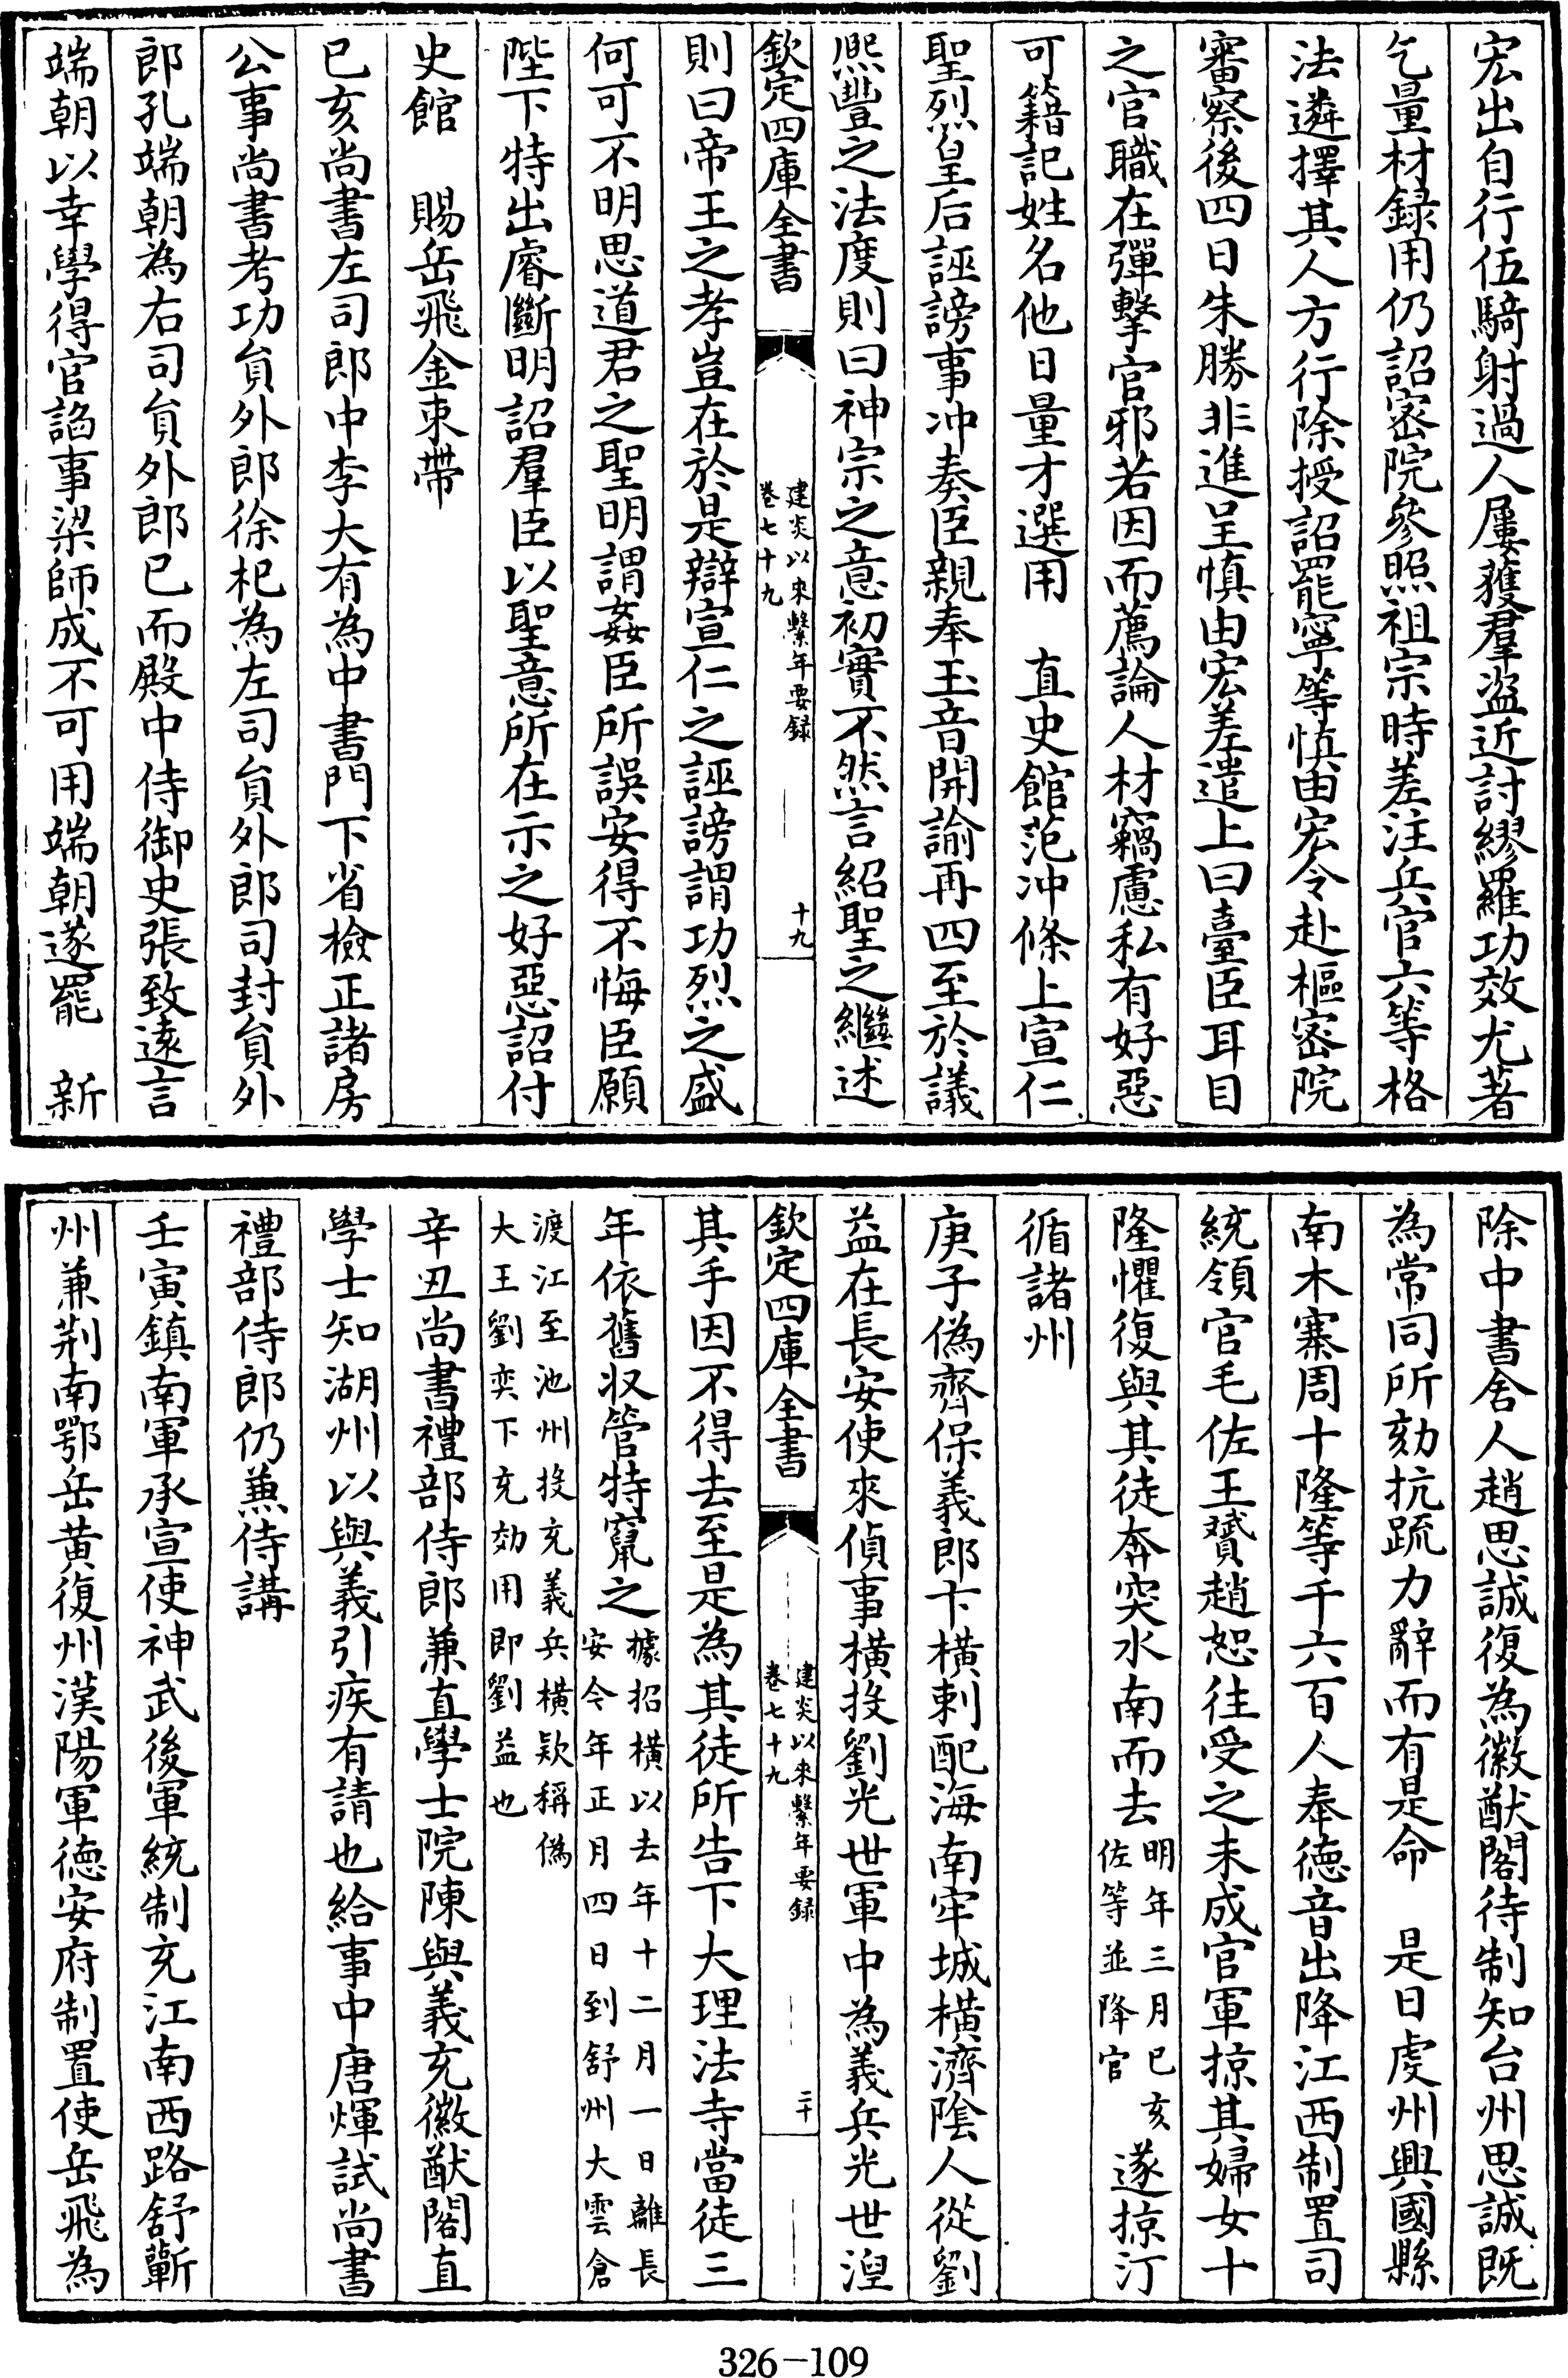 宏出自行伍騎射過人屢獲羣盗近討繆羅功效尤著
乞量材録用仍詔密院參照祖宗時差注兵官六等格
法遴擇其人方行除授詔罷寧等慎由宏令赴樞密院
審察後四日朱勝非進呈慎由宏差遣上曰臺臣耳目
之官職在彈擊官邪若因而薦論人材竊慮私有好惡
可籍記姓名他日量才選用　直史館范冲條上宣仁
聖烈皇后誣謗事冲奏臣親奉玉音開諭再四至於議
熈豐之法度則曰神宗之意初實不然言紹聖之繼述
欽定四庫全書
建炎以來繫年要録
卷七十九
十九
則曰帝王之孝豈在於是辯宣仁之誣謗謂功烈之盛
何可不明思道君之聖明謂姦臣所誤安得不悔臣願
陛下特出睿斷明詔羣臣以聖意所在示之好惡詔付
史館　賜岳飛金束帶
已亥尚書左司郎中李大有為中書門下省檢正諸房
公事尚書考功員外郎徐杞為左司員外郎司封員外
郎孔端朝為右司員外郎已而殿中侍御史張致遠言
端朝以幸學得官諂事梁師成不可用端朝遂罷　新
除中書舍人趙思誠復為徽猷閣待制知台州思誠既
為常同所劾抗疏力辭而有是命　是日虔州興國縣
南木寨周十隆等千六百人奉德音出降江西制置司
統領官毛佐王贇趙恕往受之未成官軍掠其婦女十
隆懼復與其徒奔突水南而去
明年三月已亥
佐等並降官
遂掠汀
循諸州
庚子偽齊保義郎卞橫刺配海南牢城橫濟陰人從劉
益在長安使來偵事橫投劉光世軍中為義兵光世湼
欽定四庫全書
建炎以來繫年要録
卷七十九
二十
其手因不得去至是為其徒所告下大理法寺當徒三
年依舊収管特竄之
據招橫以去年十二月一日離長
安今年正月四日到舒州大雲倉
渡江至池州投充義兵橫欵稱偽
大王劉奕下充効用即劉益也
辛丑尚書禮部侍郎兼直學士院陳與義充徽猷閣直
學士知湖州以與義引疾有請也給事中唐煇試尚書
禮部侍郎仍兼侍講
壬寅鎮南軍承宣使神武後軍統制充江南西路舒蘄
州兼荆南鄂岳黄復州漢陽軍德安府制置使岳飛為
326-109